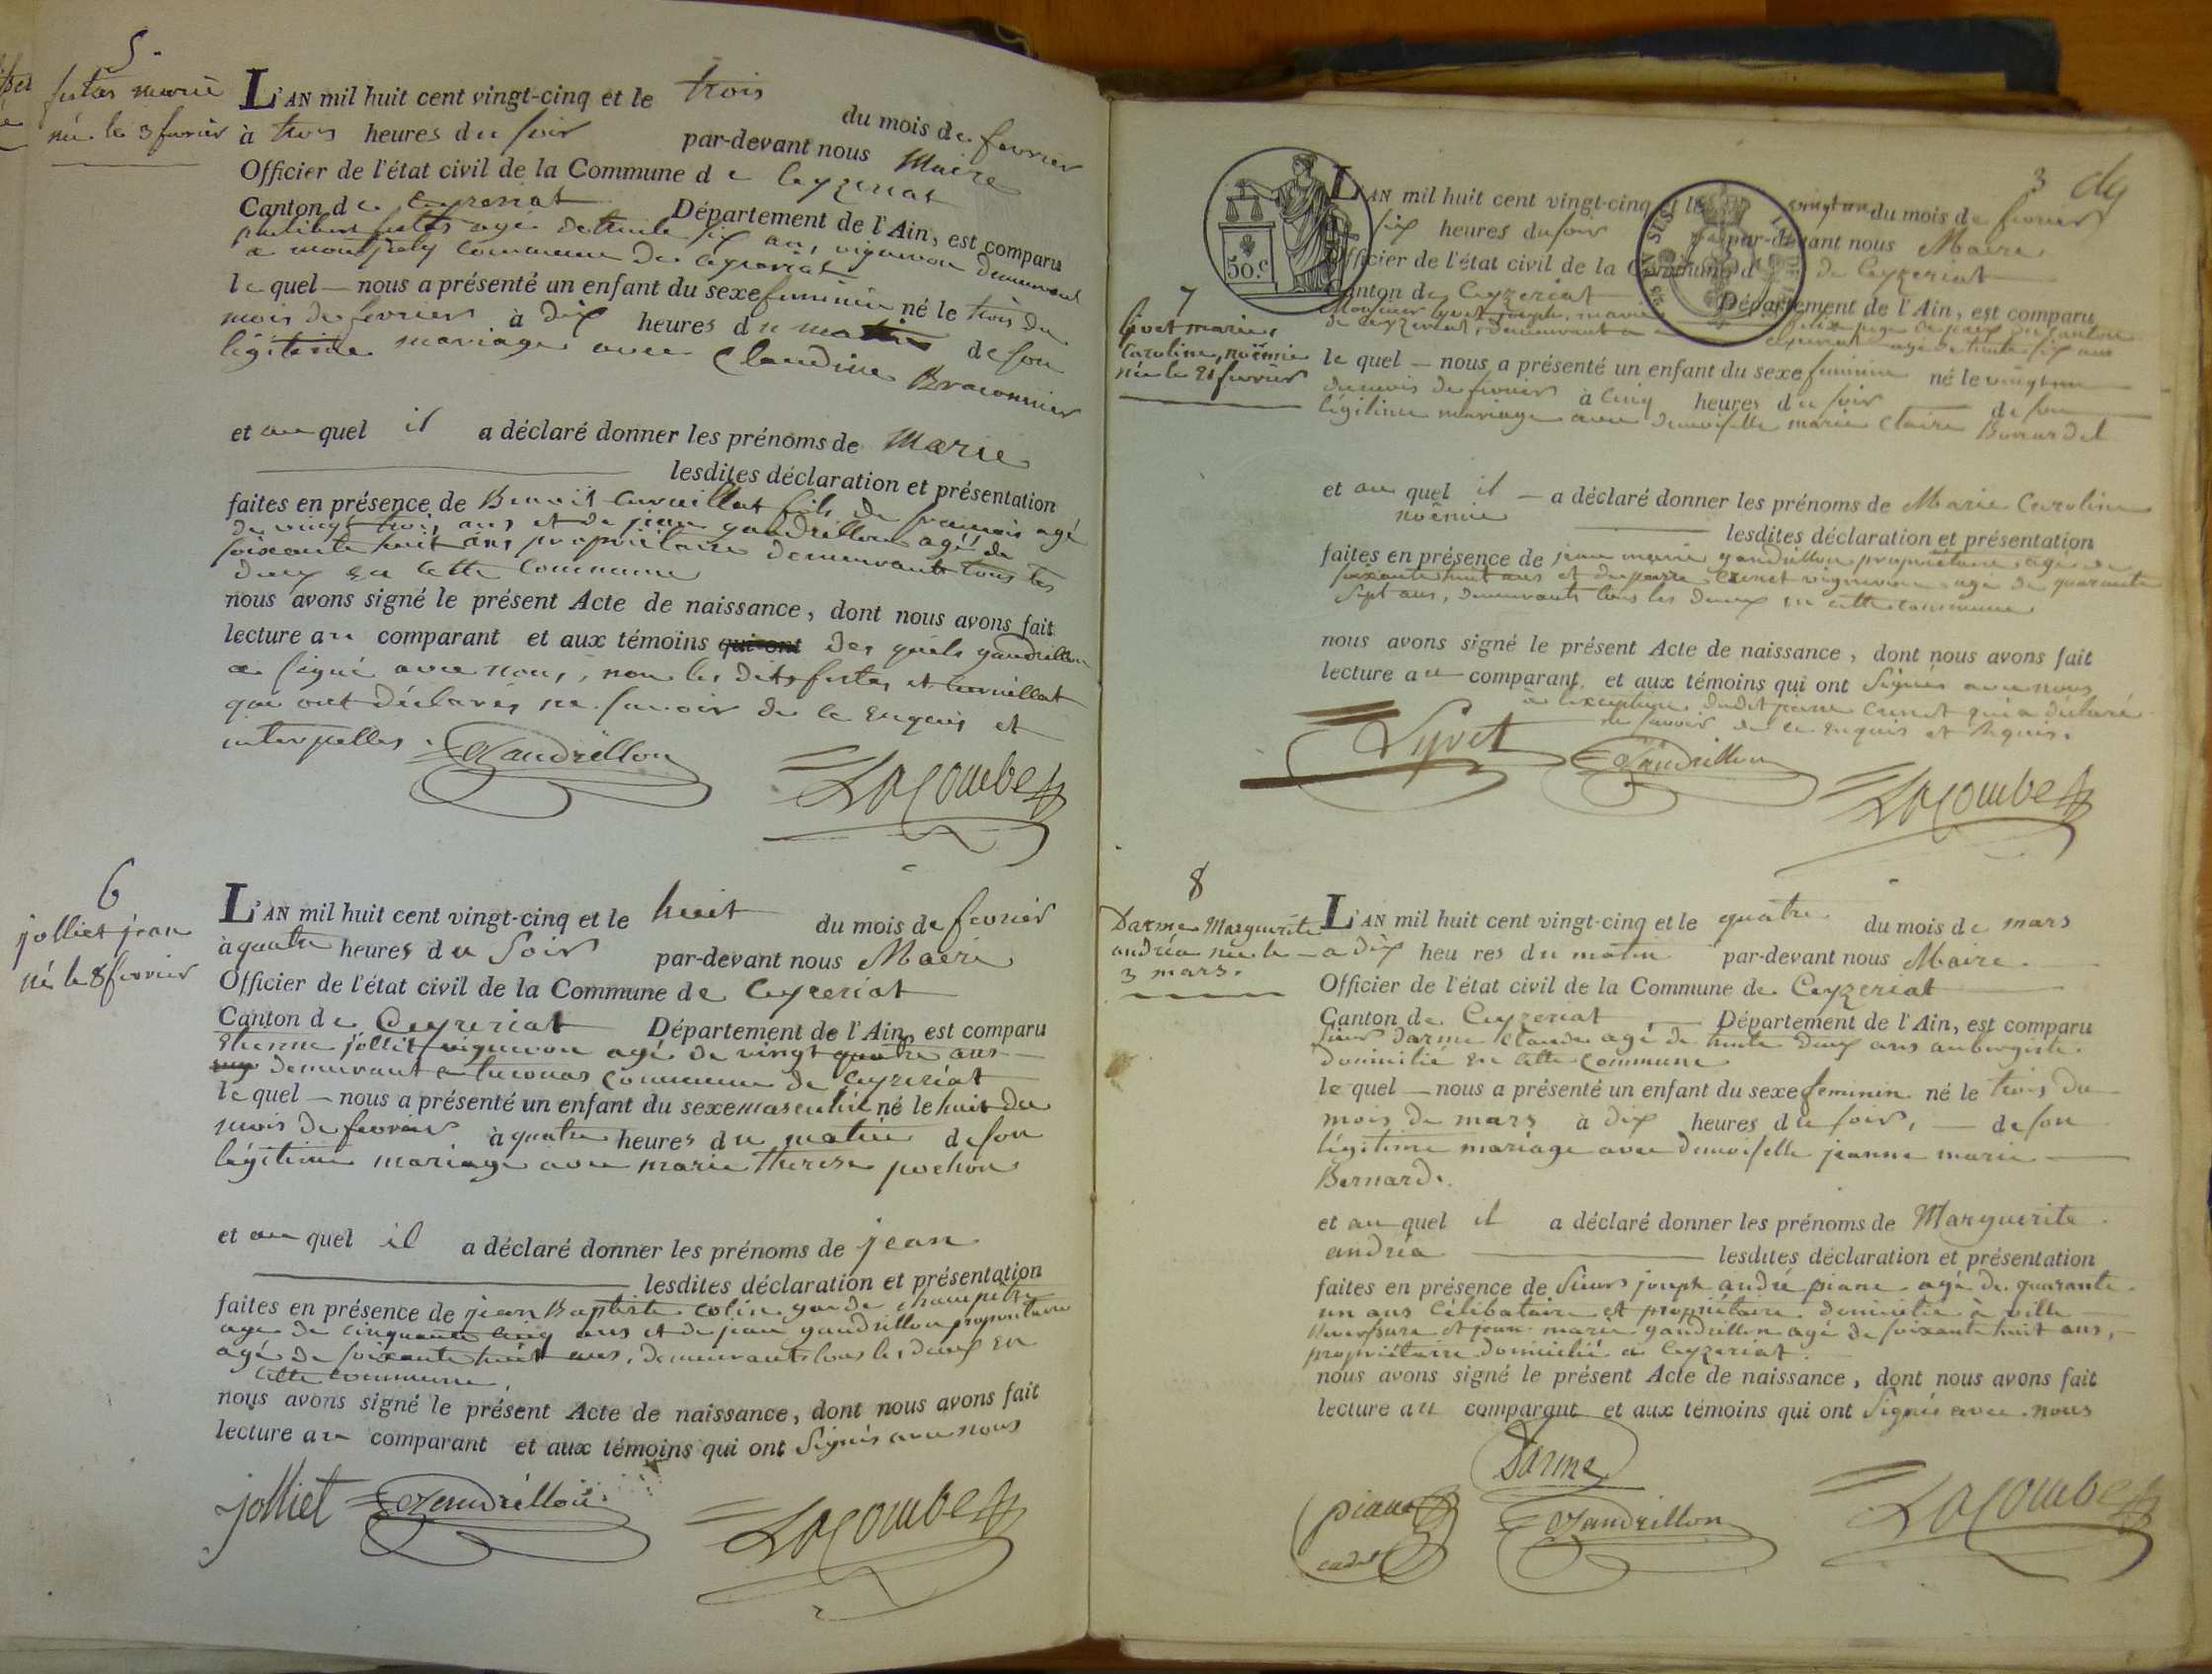 5.
marie
née le 3 fevrier
L'AN mil huit cent vingt-cinq et le trois du mois de fevrier
à trois heures du soir par-devant nous Maire
Officier de l'état civil de la Commune de Ceyzeriat
Canton de Ceyzeriat Département de l'Ain, est comparu
agé de trente six ans, vigneron demeurant
a commune de Ceyzeriat
le quel — nous a présenté un enfant du sexe feminin né le trois du
mois de fevrier à dix heures du matin de son
légitime mariage avec Claudine Braconnier
et au quel il a déclaré donner les prénoms de Marie
lesdites déclaration et présentation
faites en présence de Benoit Cuvillat fils de francois agé
de vingt trois ans et de jean gaudrillon agé de
soixante huit ans propriétaire demeurants tous les
deux en cette commune
nous avons signé le présent Acte de naissance, dont nous avons fait
lecture au comparant et aux témoins qui ont des quels gaudrillon
a signé avec nous, non les dits et
qui ont déclarés ne savoir de ce enquis et
interpelles.
Gaudrillon
Lacombe
6
jolliet jean
né le 8 fevrier
L'AN mil huit cent vingt-cinq et le huit du mois de fevrier
à quatre heures du Soir par-devant nous Maire
Officier de l'état civil de la Commune de Ceyzeriat
Canton de Ceyzeriat Département de l'Ain, est comparu
Etienne jolliet vigneron agé de vingt quatre ans
demeurant a commune de Ceyzeriat
le quel — nous a présenté un enfant du sexe masculin né le huit du
mois de fevrier à quatre heures du matin de son
légitime mariage avec marie therese pochon
et au quel il a déclaré donner les prénoms de jean
lesdites déclaration et présentation
faites en présence de jean Baptiste colin garde champetre
agé de cinquante cinq ans et de jean gaudrillon proprietaire
agé de soixante huit ans, demeurants tous les deux en
cette commune,
nous avons signé le présent Acte de naissance, dont nous avons fait
lecture au comparant et aux témoins qui ont Signés avec nous
jolliet
Gaudrillon
Lacombe
3
50.c
7
livet marie,
Caroline, noëmie
née le 21 fevrier
L'AN mil huit cent vingt-cinq et le vingt un du mois de fevrier
six heures du soir par-devant nous Maire
Officier de l'état civil de la Commune de Ceyzeriat
Canton de Ceyzeriat Département de l'Ain, est comparu
Monsieur joseph, marie juge de paix du canton
de Ceyzeriat, demeurant a Ceyzeriat agé de trente six ans
le quel — nous a présenté un enfant du sexe feminin né le vingt un
du mois de fevrier à cinq heures du soir de son
légitime mariage avec demoiselle marie Claire
et au quel il — a déclaré donner les prénoms de Marie Caroline
noëmie lesdites déclaration et présentation
faites en présence de jean marie gaudrillon propriétaire agé de
soixante huit ans et de pierre vigneron agé de quarante
sept ans, demeurants tous les deux en cette commune
nous avons signé le présent Acte de naissance, dont nous avons fait
lecture au comparant et aux témoins qui ont Signés avec nous
à l'exception dudit pierre qui a déclaré
ne savoir de ce enquis et requis.
Lyvet
Gaudrillon
Lacombe
8
Darme Marguerite
andréa née le
3 mars.
L'AN mil huit cent vingt-cinq et le quatre du mois de mars
a dix heures du matin par-devant nous Maire.
Officier de l'état civil de la Commune de Ceyzeriat
Canton de Ceyzeriat Département de l'Ain, est comparu
Sieur darme Claude agé de trente deux ans aubergiste.
domicilié en cette commune
le quel — nous a présenté un enfant du sexe feminin né le trois du
mois de mars à dix heures du soir, — de son
légitime mariage avec demoiselle jeanne marie
Bernard.
et au quel il a déclaré donner les prénoms de Marguerite
andréa lesdites déclaration et présentation
faites en présence de Sieurs joseph andré piane agé de quarante
un ans célibataire et propriétaire domicilié à ville
Reversure et jean marie gaudrillon agé de soixante huit ans,
propriétaire domicilié a Ceyzeriat.
nous avons signé le présent Acte de naissance, dont nous avons fait
lecture au comparant et aux témoins qui ont Signés avec nous
Darme
piane
cadet
Gaudrillon
Lacombe